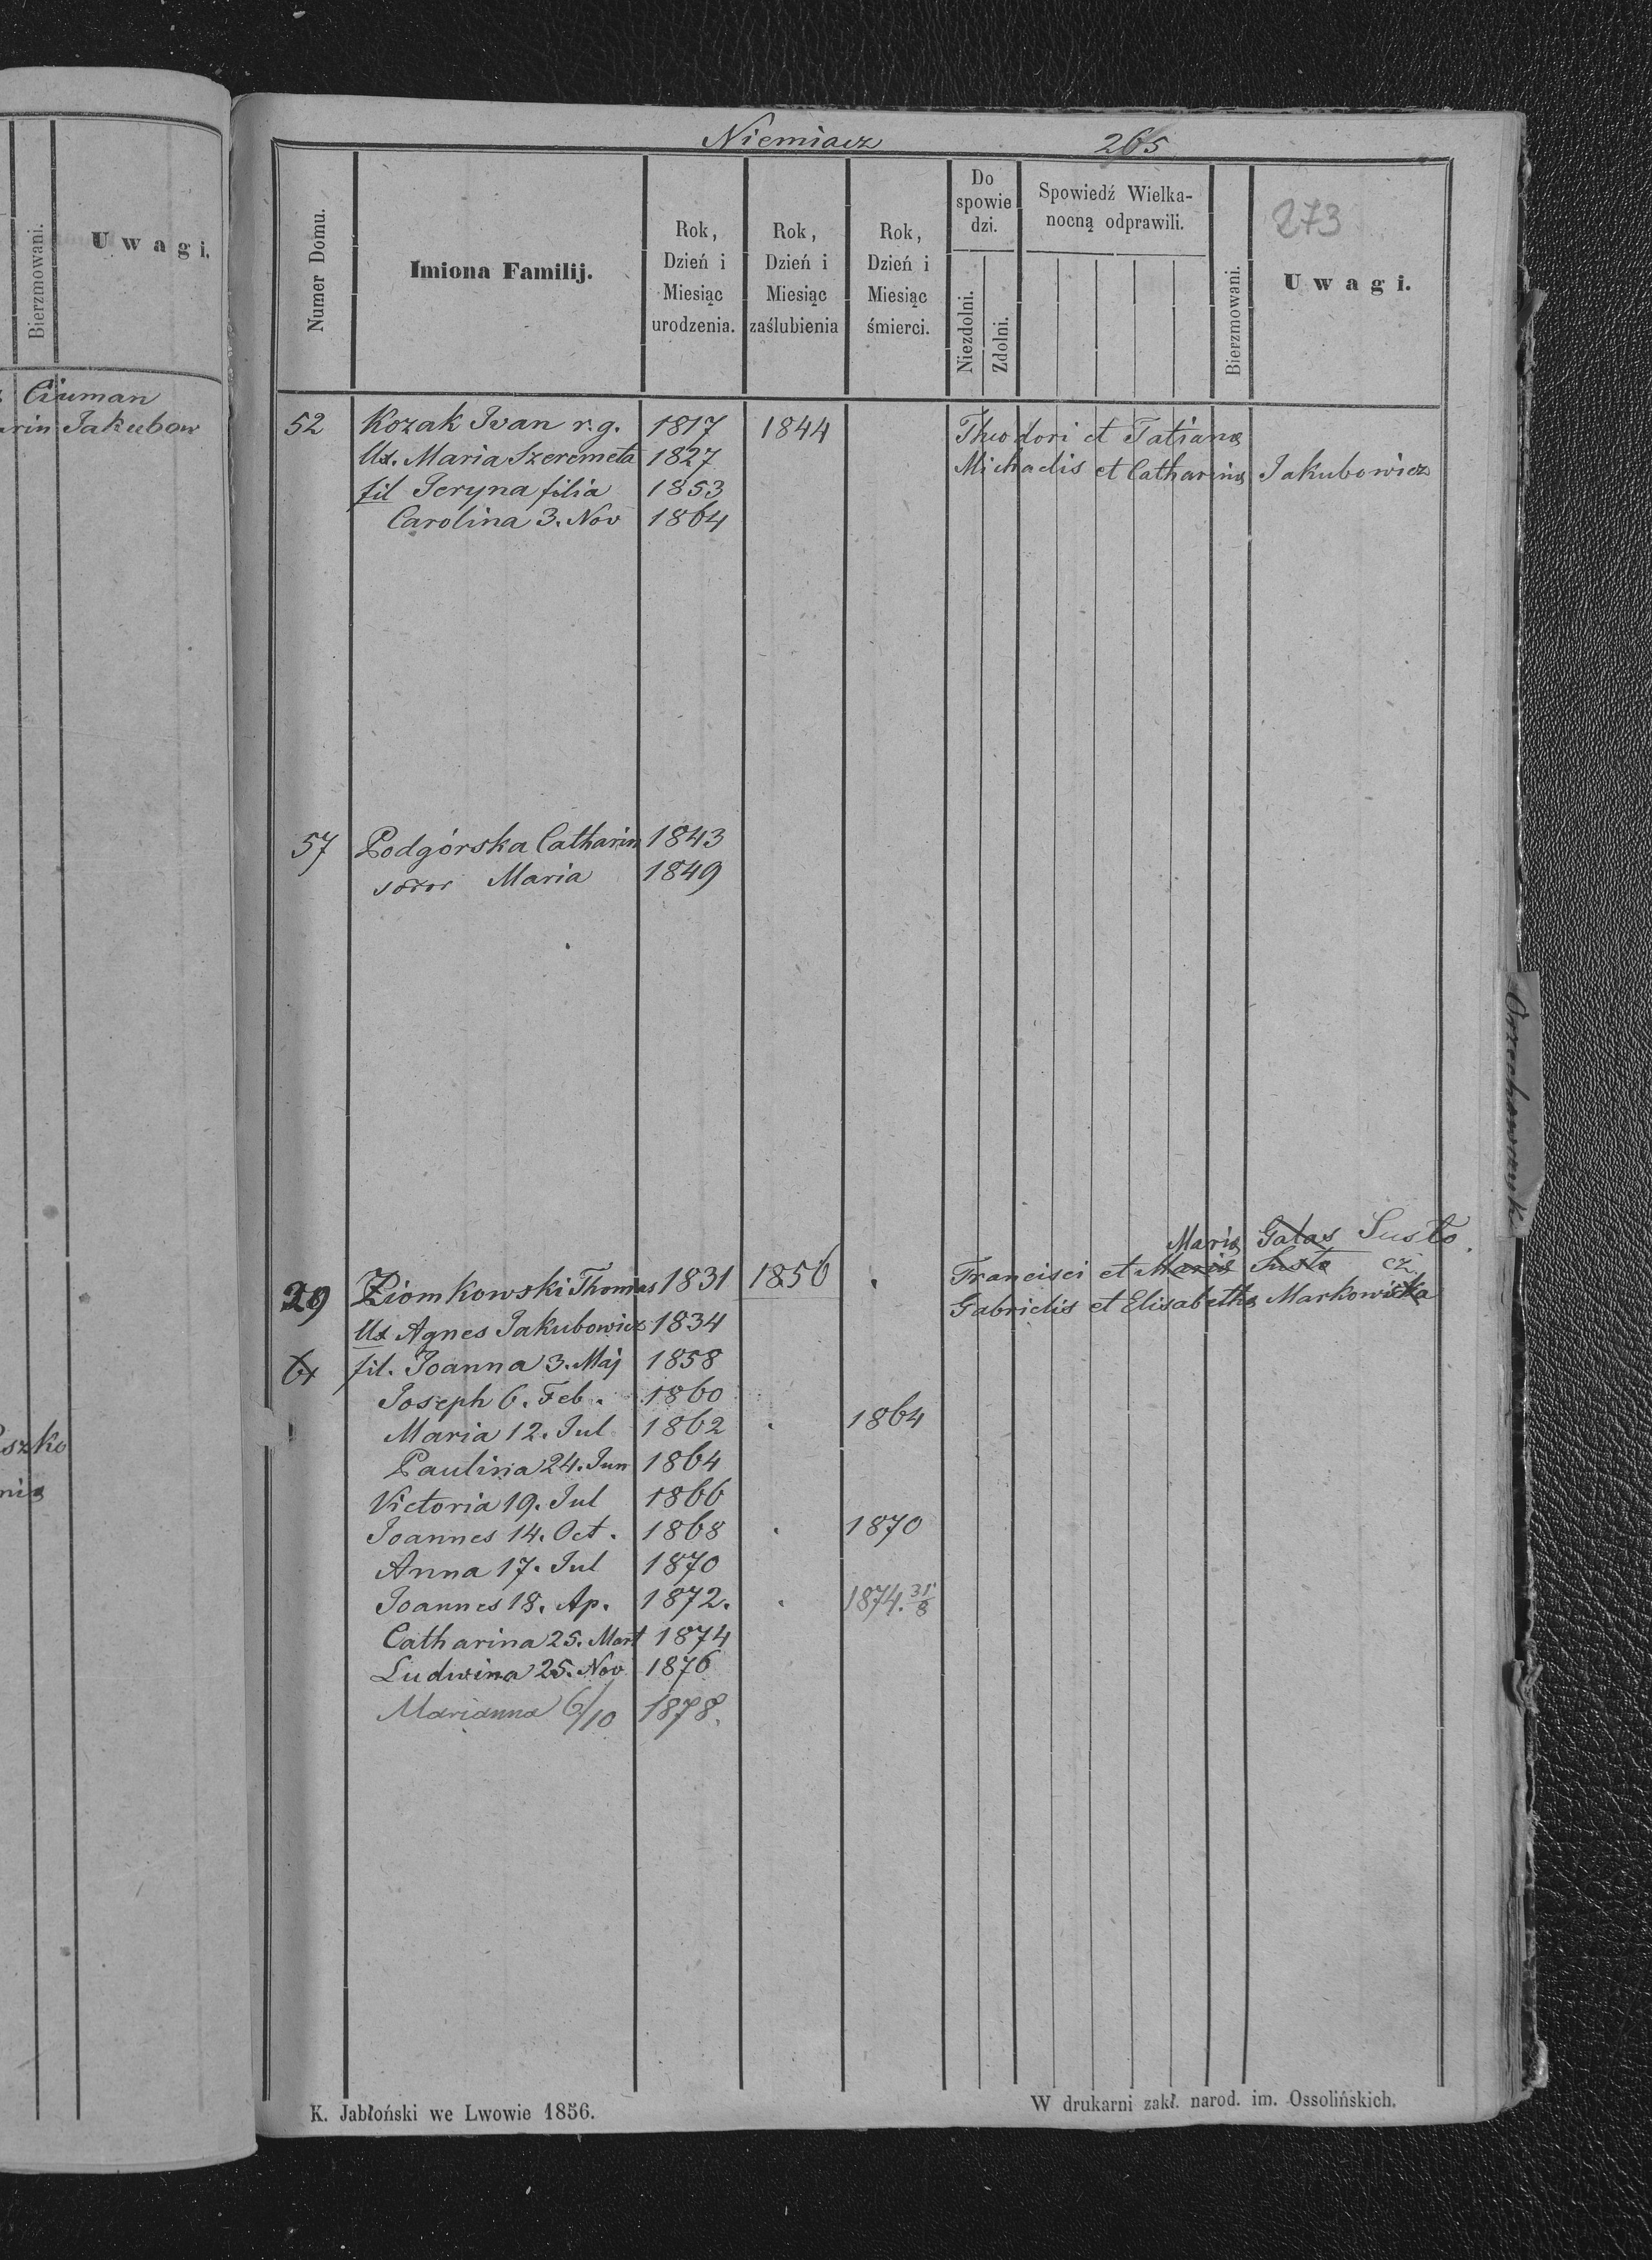 Bierzmowani.
U w a g i.
Ciuman
Jakubow
szko
Niemiacz 265
273
Numer Domu.
Imiona Familij.
Rok, Dzień i Miesiąc urodzenia.
Rok, Dzień i Miesiąc zaślubienia
Rok, Dzień i Miesiąc śmierci.
Do spowie dzi.
Niezdolni.
Zdolni.
Spowiedź Wielka-
nocną odprawili.
Bierzmowani.
U w a g i.
52 Kozak Ivan r. g. 1817 1844 Theodori et Tatianæ
Ux. Maria Szeremeta 1827 Michaelis et Catharinæ Jakubowicz
fil Jeryna filia 1853
Carolina 3. Nov 1864
57 Podgórska Catharin 1843
soror Maria 1849
Mariæ Galas Susło
29 Ziomkowski Thomas 1831 1856 Francisci et Mariæ Susło cz.
Ux Agnes Jakubowicz 1834 Gabrielis et Elisabethæ Markowicka
61 fil. Joanna 3. Maj 1858
Joseph 6. Feb. 1860
Maria 12. Jul 1862 1864
Paulina 24. Jun 1864
Victoria 19. Jul 1866
Joannes 14. Oct. 1868 1870
Anna 17. Jul 1870
Joannes 18. Ap. 1872. 1874. 31/8
Catharina 25. Mart 1874
Ludwina 25. Nov 1876
Marianna 6/10 1878.
K. Jabłoński we Lwowie 1856.
W drukarni zakł. narod. im. Ossolińskich.